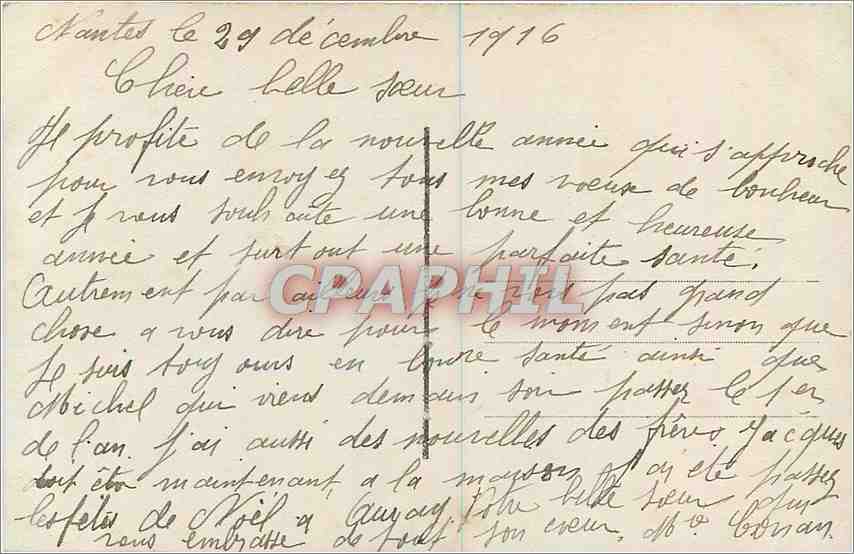 Nantes le 29 décembre 1916
Chère belle sœur
Je profite de la nouvelle année qui s'approche
pour vous envoyez tous mes vœux de bonheur
et je vous souhaite une bonne et heureuse
année et surtout une parfaite santé.
CPAPHIL
Autrement par ailleurs je ne vois pas grand
chose a vous dire pour le moment sinon que
je suis toujours en bonne santé ainsi que
Michel qui viens demain soir passer le 1er
de l'an. J'ai aussi des nouvelles des frères Jacques
doit être maintenant a la maison j'ai été passer
les fêtes de Noël a Auray Votre belle sœur qui
vous embrasse de tout son cœur. Me Conan.